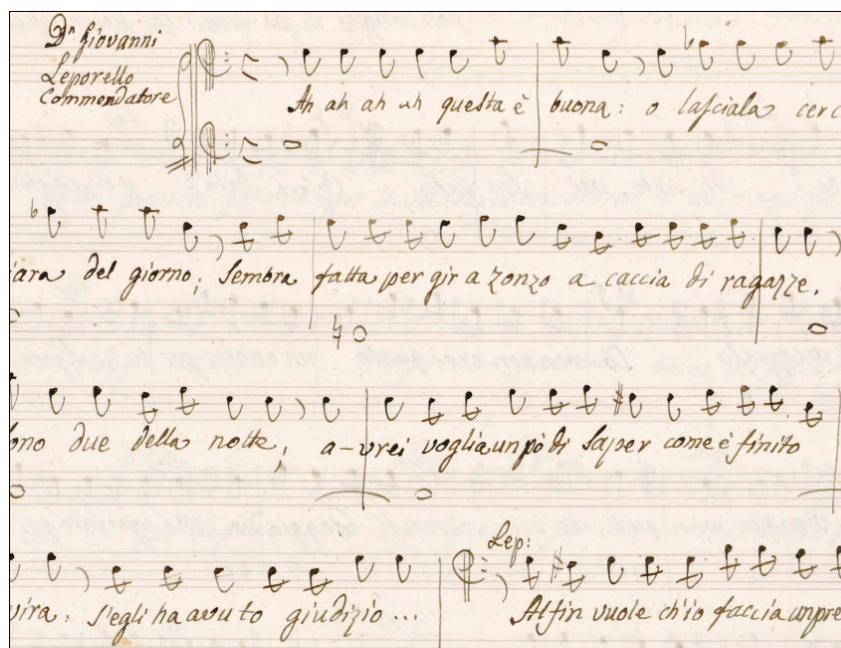 Dn Giovanni
Leporello
Commendatore
Ah ah ah ah questa è buona: o lasciala cerc
iara del giorno; sembra fatta per gir a zonzo a caccia di ragazze.
ono due della notte; a-vrei voglia un pò di saper come è finito
vira: s'egli ha avuto giudizio...
Lep:
Alfin vuole ch'io faccia un pre